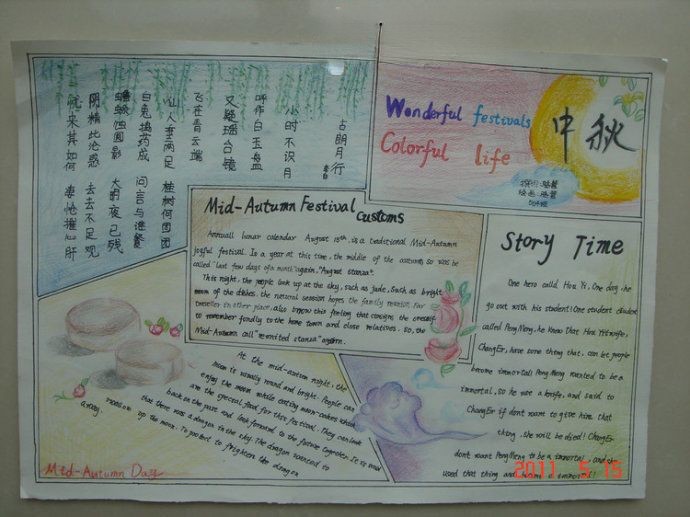 古朗月行
小时不识月
呼作白玉盘
又疑瑶台镜
飞在青云端
仙人垂两足 桂树何团团
白兔捣药成 问言与谁餐
蟾蜍蚀圆影 大明夜已残
阴精此沦惑 去去不足观
忧来其如何 凄怆摧心肝
Wonderful festivals
Colorful life
中秋
Mid-Autumn Festival
Customs
Annuall lunar calendar August 15th, is a traditional Mid-Autumn
joyful festival. In a year at this time, the middle of the autumn, so was be
called "last few days of a month" again, "August stanza".
This night, the people look up at the sky, such as jade, such as bright
moon of the dishes, the natural session hopes the family reunion. Far
traveller in other place, also know this feeling that consigns the oneself
to remember fondly to the home town and close relatives. So, the
Mid-Autumn call "reunited stanza" again.
Story Time
One hero calld Hou Yi, One day, he
go out with his student! One student
called PengMeng, he know that Hou Yi
ChangEr, have some thing that can let people
become immortal! PengMeng wanted to be a
immortal, so he use a knife, and said to
ChangEr if dont want to give him that
thing, she will be died! ChangEr
dont want PengMeng to be a immortal, and
used that thing and immortal!
At the mid-autumn night, the
moon is usually round and bright. People can
enjoy the moon while eating moon-cakes which
are the special food for this festival. They can look
back on the past and look forward to the future together. It is said
that there was a dragon in the sky. The dragon wanted to
up the moon. To protect to frighten the dragon
away.
Mid-Autumn Day
2011 5 15